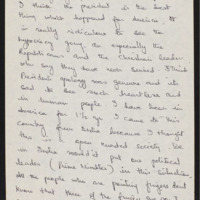 I think the president is the best
thing which happened for America. It
is really ridiculous to see the
hypocrisy going on especially the
Republicans and the Christian leader
who say they have never sinned. I think
President apology was genuine and its
sad to see such heartless and
in human people. I have been in
America for 1½ yrs. I came to this
country from India because I thought
this is open minded society. We
in India would'd put our political
leader (Prime Minister) in this situation.
All the people who are pointing fingers don't
know that three of the fingers are